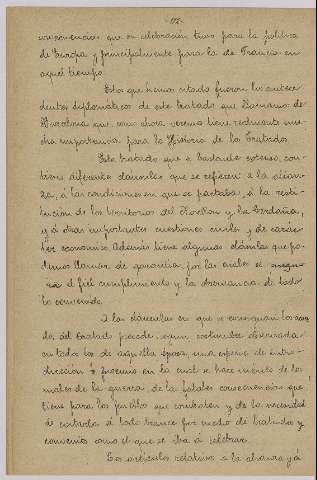 -12-
consecuencias que su celebración tuvo para la política
de Europa y principalmente para la de Francia en
aquel tiempo.
Estos que hemos citado fueron los antece
dentes diplomáticos de este tratado que llamamos de
Barcelona que como ahora veremos tiene realmente mu
cha importancia para la Historia de los Tratados.
Este tratado que es bastante extenso, con
tiene diferentes cláusulas que se refieren a la alian
za, á las condiciones en que se pactaba, á la resti
tución de los territorios del Rosellón y la Cerdaña,
y á otras importantes cuestiones civiles y de carác
ter económico. Además tiene algunas cláusulas que po
demos llamar de garantía, por las cuales se asegu
ra el fiel cumplimiento y la observancia de todo
lo convenido.
A las cláusulas en que se consignan los
del tratado precede, según costumbre observada
en todos los de aquella época, una especie de intro
ducción ó proemio en la cual se hace mérito de los
males de la guerra, de las fatales consecuencias que
tiene para los pueblos que combaten y de la necesidad
de evitarla á todo trance por medio de tratados y
convenios como el que se iba á celebrar.
Los artículos relativos a la alianza y á